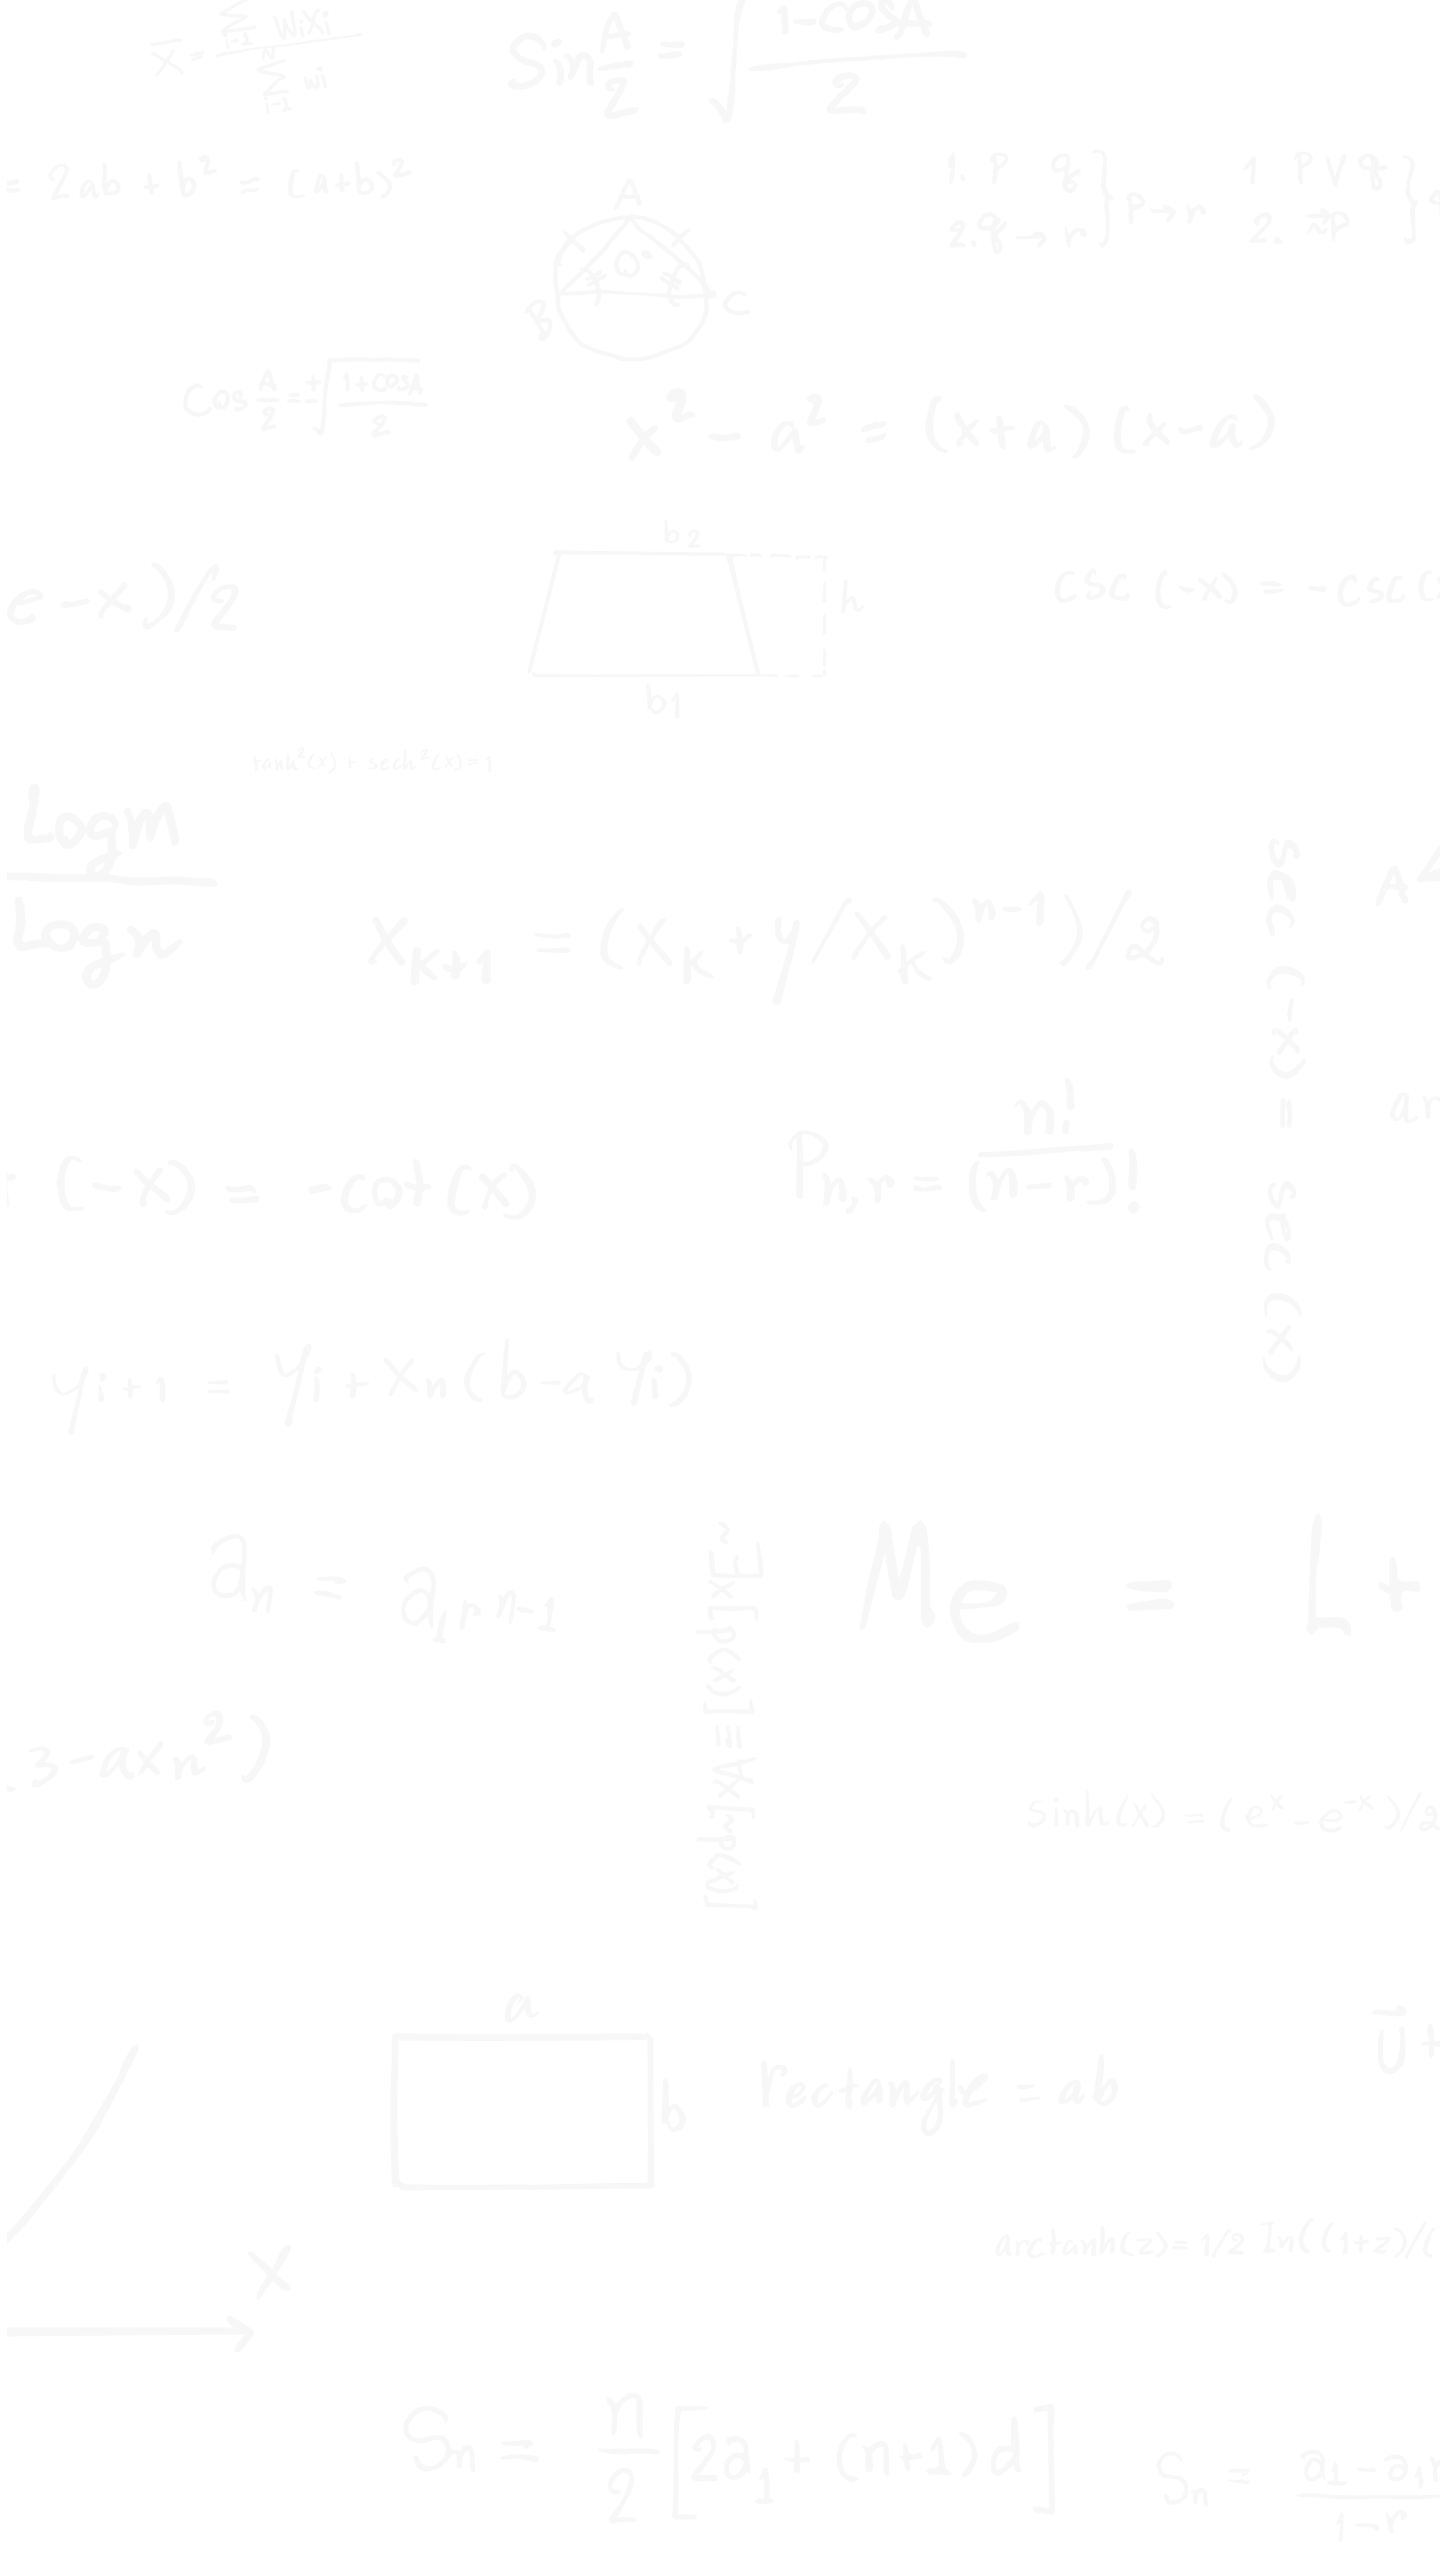 x̄ = ∑ i-1 WiXi / N ∑ i-1 wi
Sin A/2 = √ 1-cosA / 2
= 2ab + b² = (a+b)²
1. P q } P → r
2. q → r
1 P V q }
2. ~P
A
O°
B
C
Cos A/2 = ± √ 1+cosA / 2
x² - a² = (x+a) (x-a)
b2
e - x )/2
h
csc (-x) = - csc (
b1
tanh²(x) + sech²(x) = 1
Logm
Logn
A
X K+1 = (X K + y/X K ) n-1 )/2
sec (-x) = sec (x)
ar
(-x) = -cot (x)
P n,r = n! / (n-r)!
y i+1 = y i + X n ( b - a y i )
a n = a 1 r n-1
~Ex[p(x)] ≡ Ax[~p(x)]
Me = L +
3 - axn² )
sinh(x) = ( eˣ - e⁻ˣ )/2
a
b
rectangle = ab
U⃗ +
arctanh(z) = 1/2 In( (1+z)/(
X
Sn = n/2 [2a1 + (n+1) d ]
Sn = a1 - a1r / 1-r